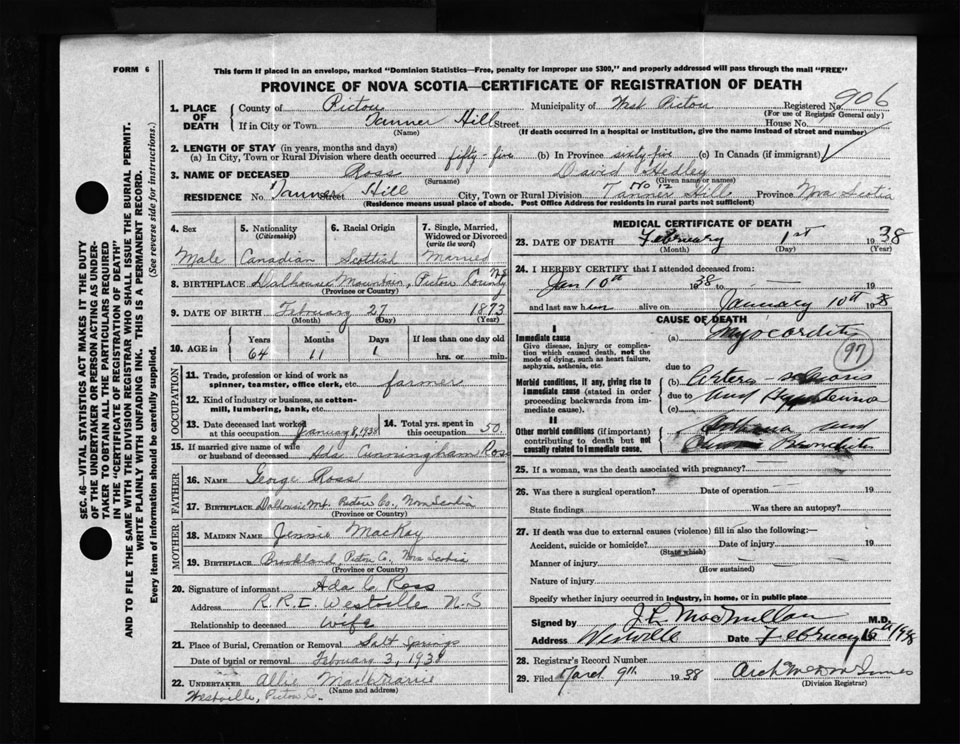 FORM 6
This form if placed in an envelope, marked "Dominion Statistics—Free, penalty for improper use $300," and properly addressed will pass through the mail "FREE"
PROVINCE OF NOVA SCOTIA—CERTIFICATE OF REGISTRATION OF DEATH
1. PLACE OF DEATH County of Pictou Municipality of West Pictou Registered No. 906
(For use of Registrar General only)
If in City or Town Tanner Hill Street House No.
(Name) (If death occurred in a hospital or institution, give the name instead of street and number)
2. LENGTH OF STAY (in years, months and days)
(a) In City, Town or Rural Division where death occurred fifty-five (b) In Province sixty-five (c) In Canada (if immigrant)
3. NAME OF DECEASED Ross David Hedley
(Surname) (Given name or names)
RESIDENCE No. Tanner Hill Street City, Town or Rural Division Tanner Hill No 12 Province Nova Scotia
(Residence means usual place of abode. Post Office Address for residents in rural parts not sufficient)
4. Sex 5. Nationality (Citizenship) 6. Racial Origin 7. Single, Married, Widowed or Divorced (write the word)
Male Canadian Scottish Married
8. BIRTHPLACE Dalhousie Mountain, Pictou County N.S
(Province or Country)
9. DATE OF BIRTH February 27 1873
(Month) (Day) (Year)
10. AGE in Years Months Days If less than one day old
64 11 1 hrs. or min.
OCCUPATION
11. Trade, profession or kind of work as spinner, teamster, office clerk, etc. farmer
12. Kind of industry or business, as cotton-mill, lumbering, bank, etc.
13. Date deceased last worked at this occupation January 8, 1938 14. Total yrs. spent in this occupation 50.
15. If married give name of wife or husband of deceased Ada Cunningham Ross
FATHER
16. NAME George Ross
17. BIRTHPLACE Dalhousie Mt. Pictou Co, Nova Scotia
(Province or Country)
MOTHER
18. MAIDEN NAME Jennie MacKay
19. BIRTHPLACE Brookland, Pictou C. Nova Scotia
(Province or Country)
20. Signature of informant Ada C Ross
Address R.R.I. Westville N.S
Relationship to deceased Wife
21. Place of Burial, Cremation or Removal Salt Springs
Date of burial or removal February 3, 1938
22. UNDERTAKER Allie
(Name and address)
Westville, Pictou Co.
MEDICAL CERTIFICATE OF DEATH
23. DATE OF DEATH February 1st 1938
(Month) (Day) (Year)
24. I HEREBY CERTIFY that I attended deceased from:
Jan 10th 1938 to —
and last saw him alive on January 10th 1938
CAUSE OF DEATH
I
Immediate cause (a) Myocarditis
Give disease, injury or complication which caused death, not the mode of dying, such as heart failure, asphyxia, asthenia, etc.
97
due to
Morbid conditions, if any, giving rise to immediate cause (stated in order proceeding backwards from immediate cause).
(b)
due to
(c)
II
Other morbid conditions (if important) contributing to death but not causally related to immediate cause.
Asthma and
25. If a woman, was the death associated with pregnancy?
26. Was there a surgical operation? Date of operation 19
State findings Was there an autopsy?
27. If death was due to external causes (violence) fill in also the following:—
Accident, suicide or homicide? Date of injury 19
(State which)
Manner of injury
(How sustained)
Nature of injury
Specify whether injury occurred in industry, in home, or in public place
Signed by J L MacMillan M.D.
Address Westville Date February
28. Registrar's Record Number
29. Filed March 9th 1938
(Division Registrar)
SEC. 46—VITAL STATISTICS ACT MAKES IT THE DUTY
OF THE UNDERTAKER OR PERSON ACTING AS UNDER-
TAKER TO OBTAIN ALL THE PARTICULARS REQUIRED
IN THE "CERTIFICATE OF REGISTRATION OF DEATH"
AND TO FILE THE SAME WITH THE DIVISION REGISTRAR WHO SHALL ISSUE THE BURIAL PERMIT.
WRITE PLAINLY WITH UNFADING INK. THIS IS A PERMANENT RECORD.
Every item of information should be carefully supplied. (See reverse side for instructions.)